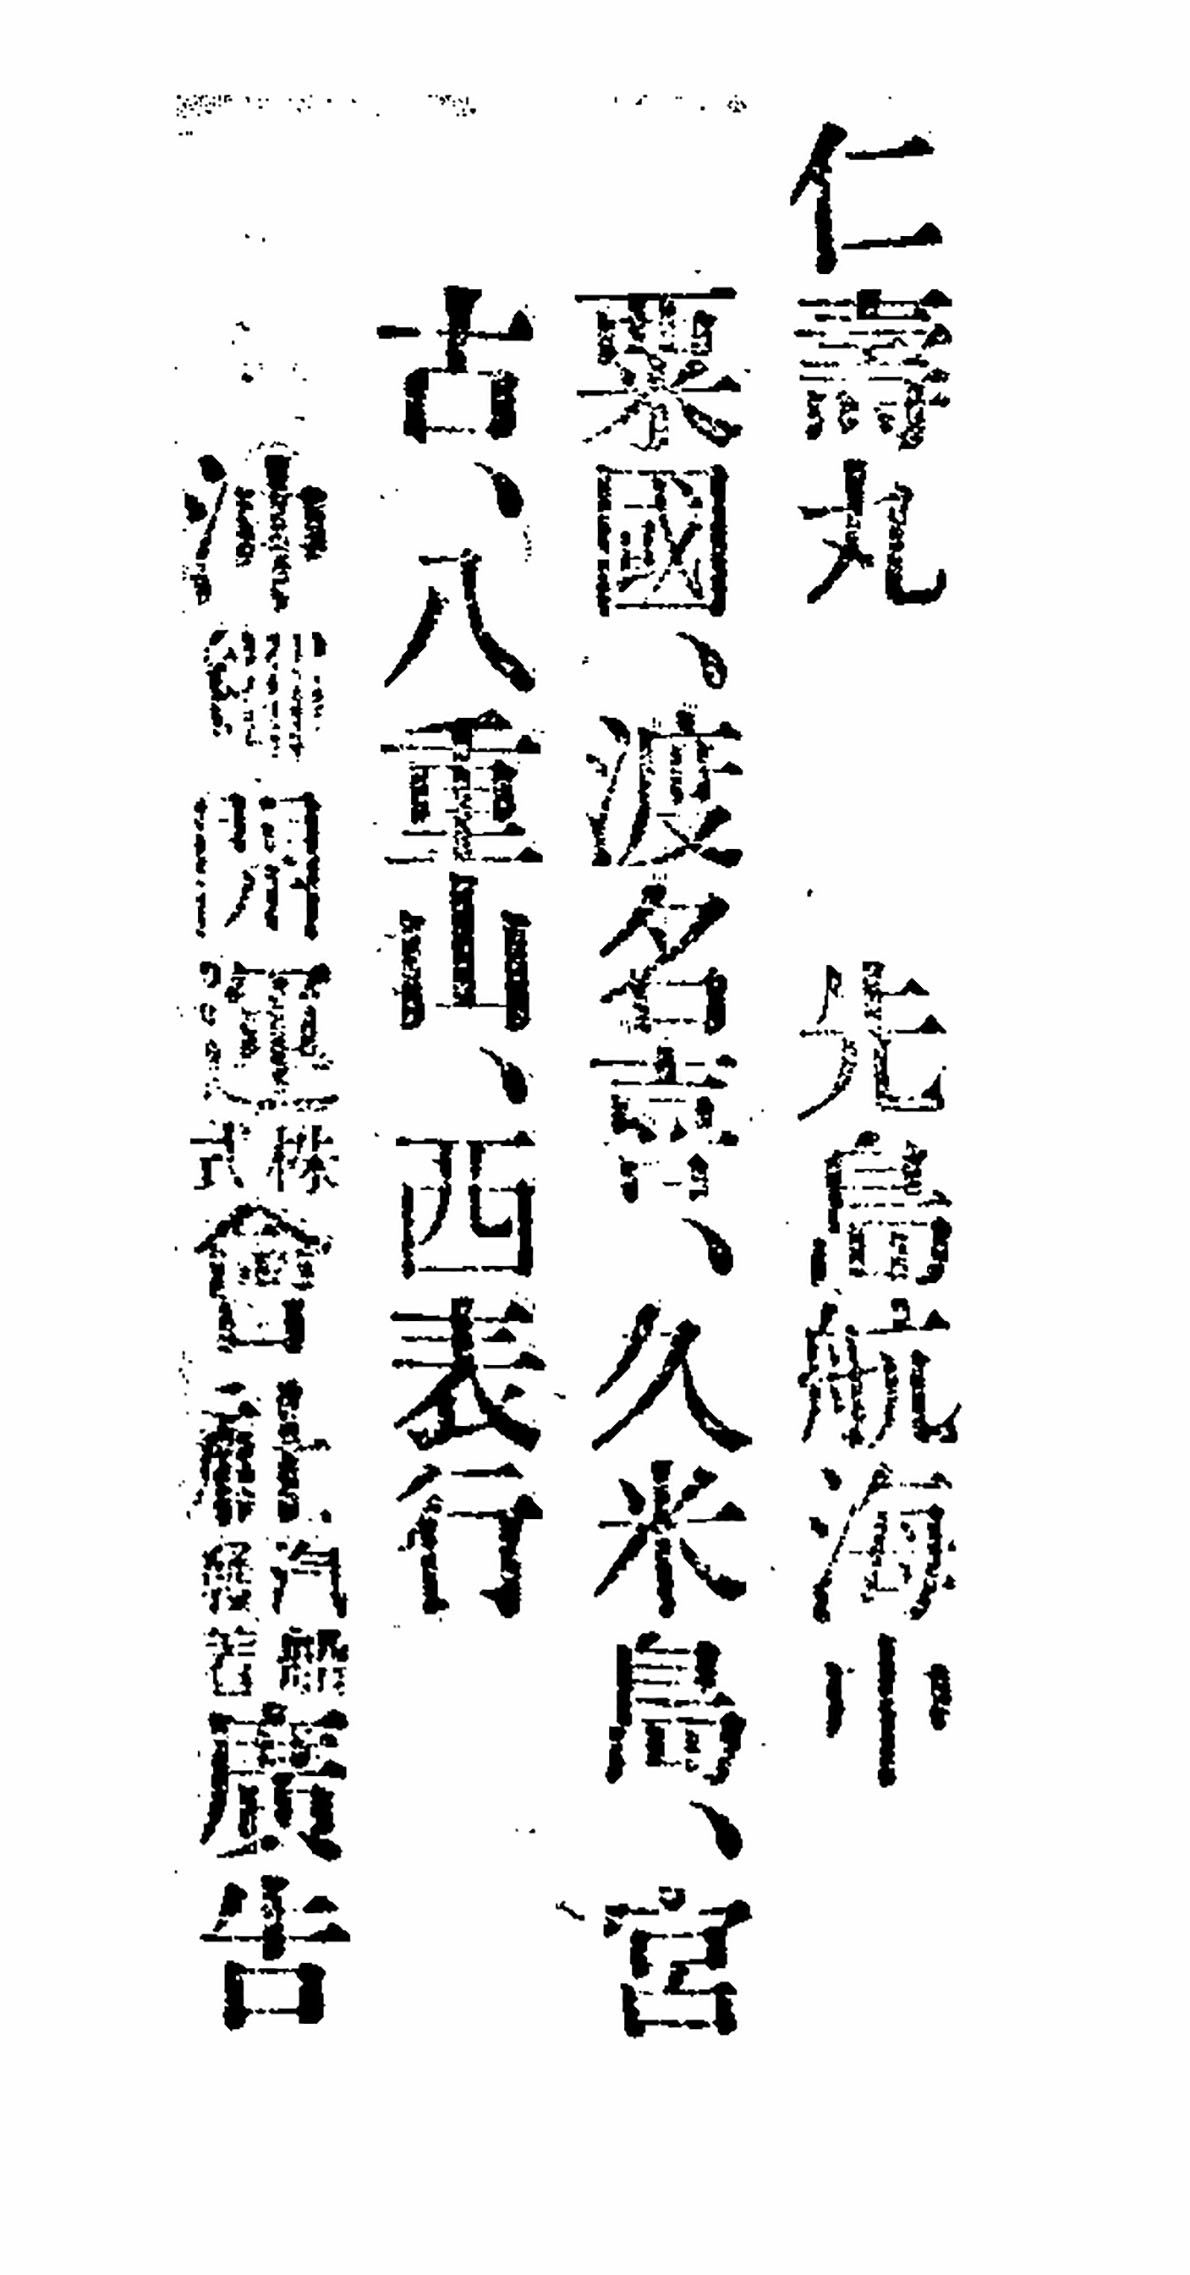 仁壽丸　先島航海中
粟國、渡名喜、久米島、宮
古、八重山、西表行
沖繩開運株式會社汽廣告